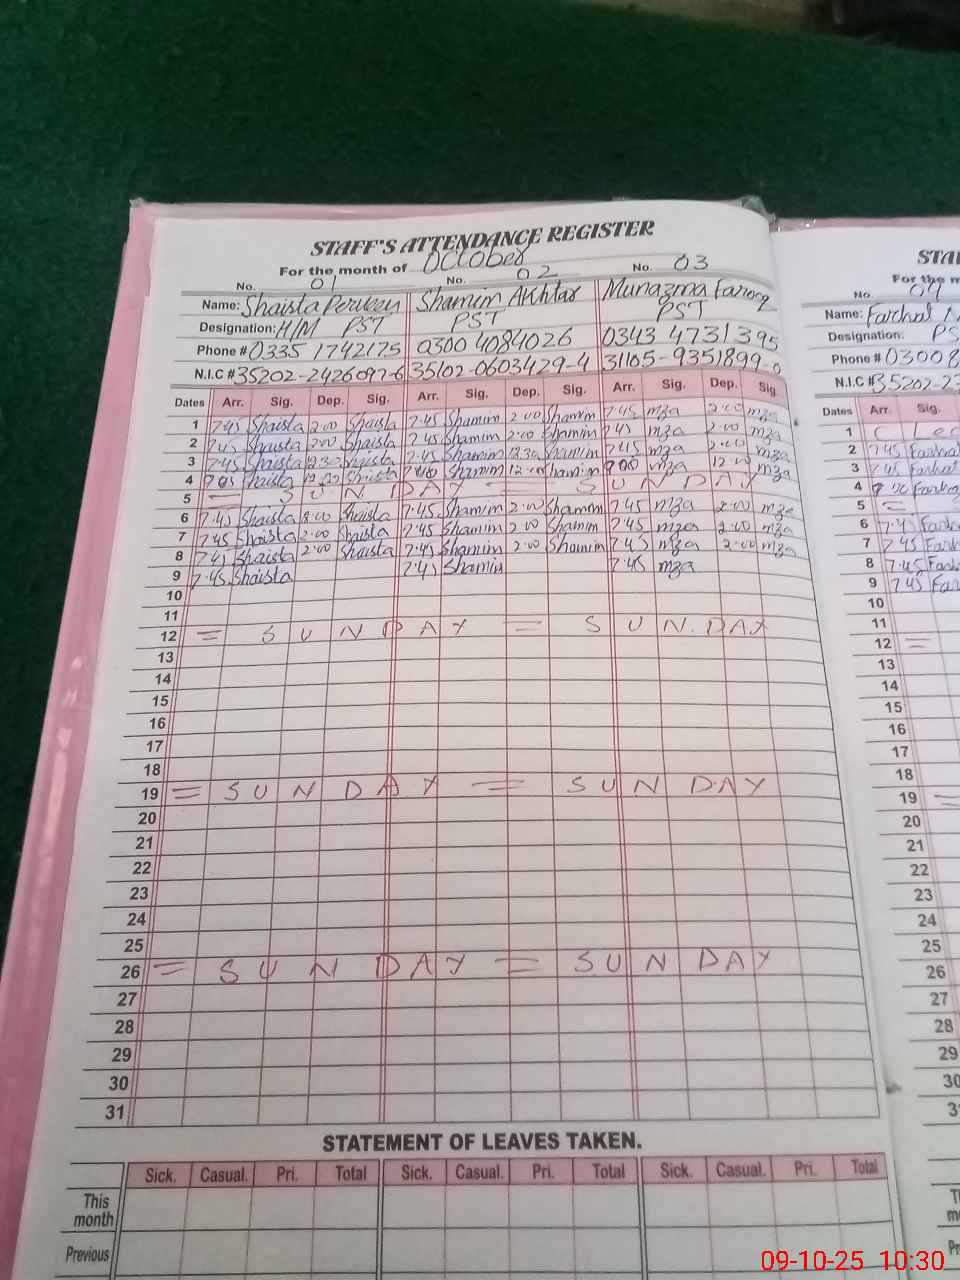 STAFF'S ATTENDANCE REGISTER
For the month of October
No. 01 No. 02 No. 03
Name: Shaista Perveen Shamim Akhtar Munazma Farooq
Designation: H/M PST PST PST
Phone # 0335 1742175 0300 4084026 0343 4731395
N.I.C # 35202-2426097-6 35102-0603429-4 31105-9351899-0
Dates Arr. Sig. Dep. Sig. Arr. Sig. Dep. Sig. Arr. Sig. Dep. Sig.
1 7.45 Shaista 2.00 Shaista 7.45 Shamim 2.00 Shamim 7.45 mza 2.00 mza
2 7.45 Shaista 2.00 Shaista 7.45 Shamim 2.00 Shamim 7.45 mza 2.00 mza
3 7.45 Shaista 12.30 Shaista 7.45 Shamim 12.30 Shamim 7.45 mza mza
4 Shaista Shaista Shamim 12.00 Shamim mza 12.00 mza
5 = SUNDAY = SUNDAY
6 7.45 Shaista 2.00 Shaista 7.45 Shamim 2.00 Shamim 7.45 mza 2.00 mza
7 7.45 Shaista 2.00 Shaista 7.45 Shamim 2.00 Shamim 7.45 mza 2.00 mza
8 7.45 Shaista 2.00 Shaista 7.45 Shamim 2.00 Shamim 7.45 mza 2.00 mza
9 7.45 Shaista 7.45 Shamim 7.45 mza
10
11
12 = SUNDAY = SUN.DAY
13
14
15
16
17
18
19 = SUNDAY = SUNDAY
20
21
22
23
24
25
26 = SUNDAY = SUNDAY
27
28
29
30
31
STATEMENT OF LEAVES TAKEN.
Sick. Casual. Pri. Total Sick. Casual. Pri. Total Sick. Casual. Pri. Total
This month
Previous
STA
For the m
No. 04
Name: Farhat
Designation: PS
Phone # 03008
N.I.C # 35202-23
Dates Arr. Sig.
1
2 7.45 Farhat
3 7.45 Farhat
4
5 =
6 7.45 Farh
7 7.45 Farh
8 7.45 Farh
9 7.45 Fa
10
11
12 =
13
14
15
16
17
18
19 =
20
21
22
23
24
25
26
27
28
29
30
3
09-10-25 10:30